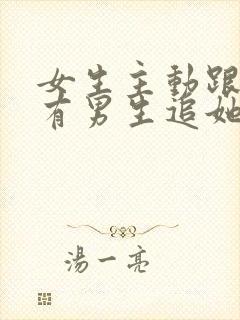 女生主動跟
有男生追她
湯一亮